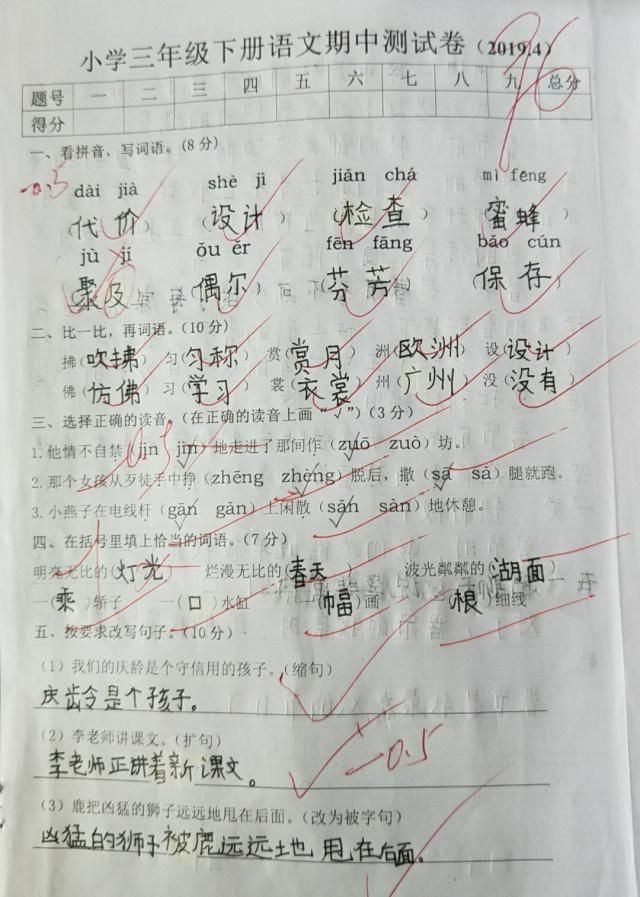 小学三年级下册语文期中测试卷（2019.4）
题号 一 二 三 四 五 六 七 八 九 总分
得分
一、看拼音，写词语。（8分）
-0.5
dài jià shè jì jiǎn chá mì fēng
（代价）（设计）（检查）（蜜蜂）
jù jí ǒu ěr fēn fāng bǎo cún
（聚及）（偶尔）（芬芳）（保存）
二、比一比，再词语。（10分）
拂（吹拂） 匀（匀称） 赏（赏月） 洲（欧洲） 设（设计）
佛（仿佛） 习（学习） 裳（衣裳） 州（广州） 没（没有）
三、选择正确的读音。（在正确的读音上画“√”）（3分）
1.他情不自禁（jīn jìn）地走进了那间作（zuō zuò）坊。
2.那个女孩从歹徒手中挣（zhēng zhèng）脱后，撒（sā sǎ）腿就跑。
3.小燕子在电线杆（gān gǎn）上闲散（sǎn sàn）地休憩。
四、在括号里填上恰当的词语。（7分）
明亮无比的（灯光） 烂漫无比的（春天） 波光粼粼的（湖面）
一（乘）轿子 一（口）水缸 一（幅）画 一（根）细线
五、按要求改写句子。（10分）
（1）我们的庆龄是个守信用的孩子。（缩句）
庆龄是个孩子。
（2）李老师讲课文。（扩句）
-0.5
李老师正讲着新课文。
（3）鹿把凶猛的狮子远远地甩在后面。（改为被字句）
凶猛的狮子被鹿远远地甩在后面。